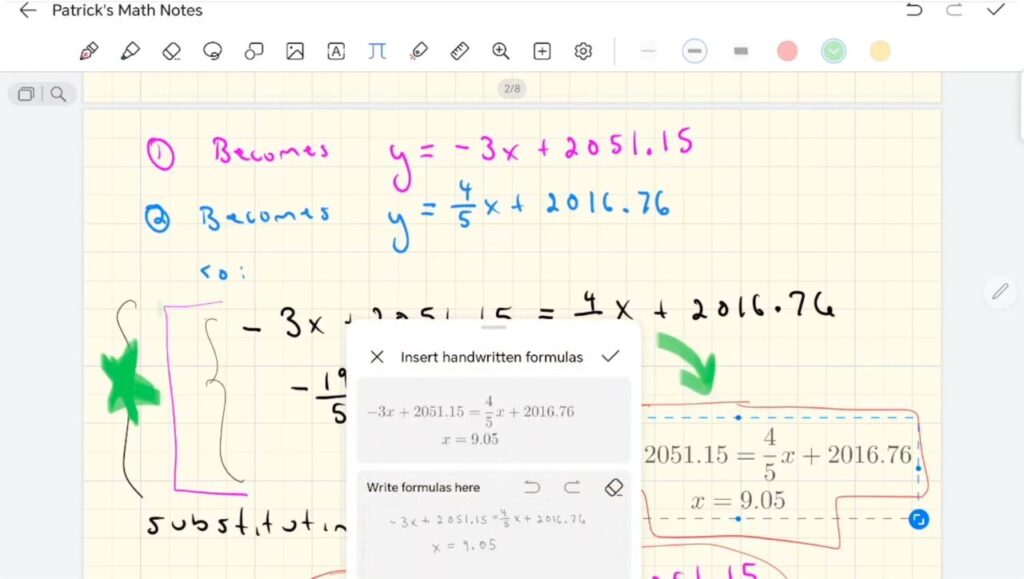 Patrick's Math Notes
2/8
① Becomes y = -3x + 2051.15
② Becomes y = 4/5 x + 2016.76
so:
-3x + 2051.15 = 4/ x + 2016.76
-19/5
Insert handwritten formulas
−3x + 2051.15 = 4/5 x + 2016.76
x = 9.05
Write formulas here
-3x + 2051.15 = 4/5 x + 2016.76
x = 9.05
2051.15 = 4/5 x + 2016.76
x = 9.05